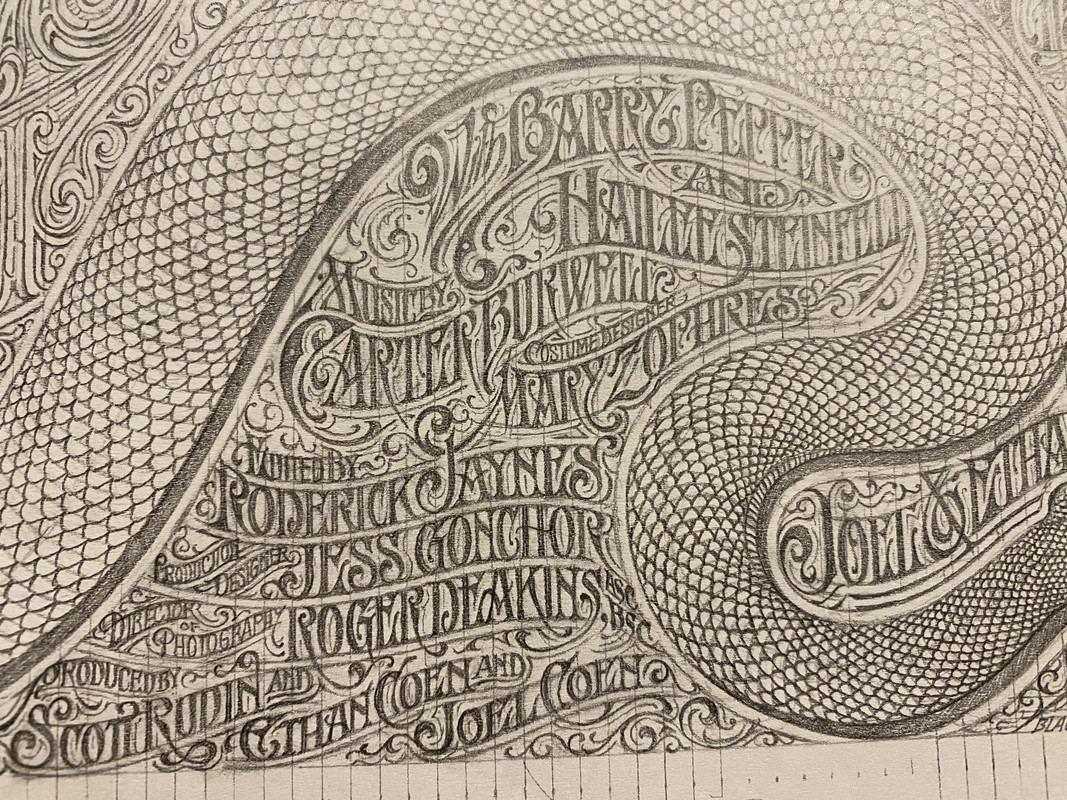 With BARRY PEPPER
AND
HAILEE STEINFELD
MUSIC BY
CARTER BURWELL
COSTUME DESIGNER
MARY ZOPHRES
EDITED BY
RODERICK JAYNES
PRODUCTION
DESIGNER
JESS GONCHOR
DIRECTOR
OF
PHOTOGRAPHY
ROGER DEAKINS
ASC
BSC
PRODUCED BY
SCOTT RUDIN AND
ETHAN COEN AND
JOEL COEN
JOEL & ETHA
BLA